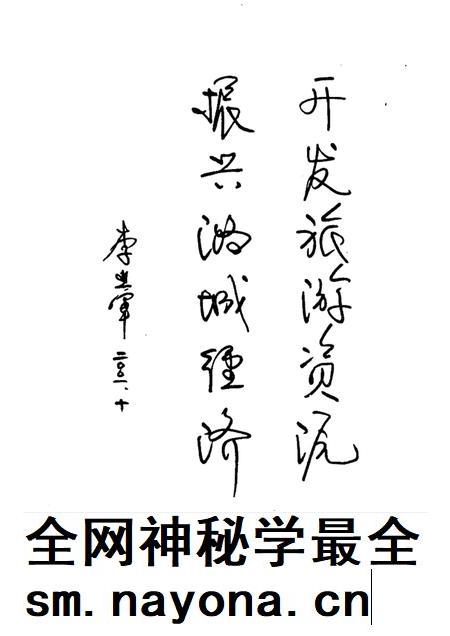 开发旅游资源
振兴潞城经济
李 军 二〇〇一.十
全网神秘学最全
sm.nayona.cn